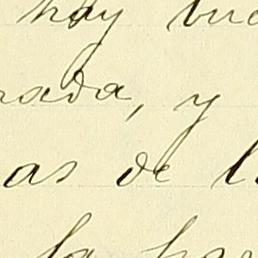 hay bue
rada, y
as de l
la par